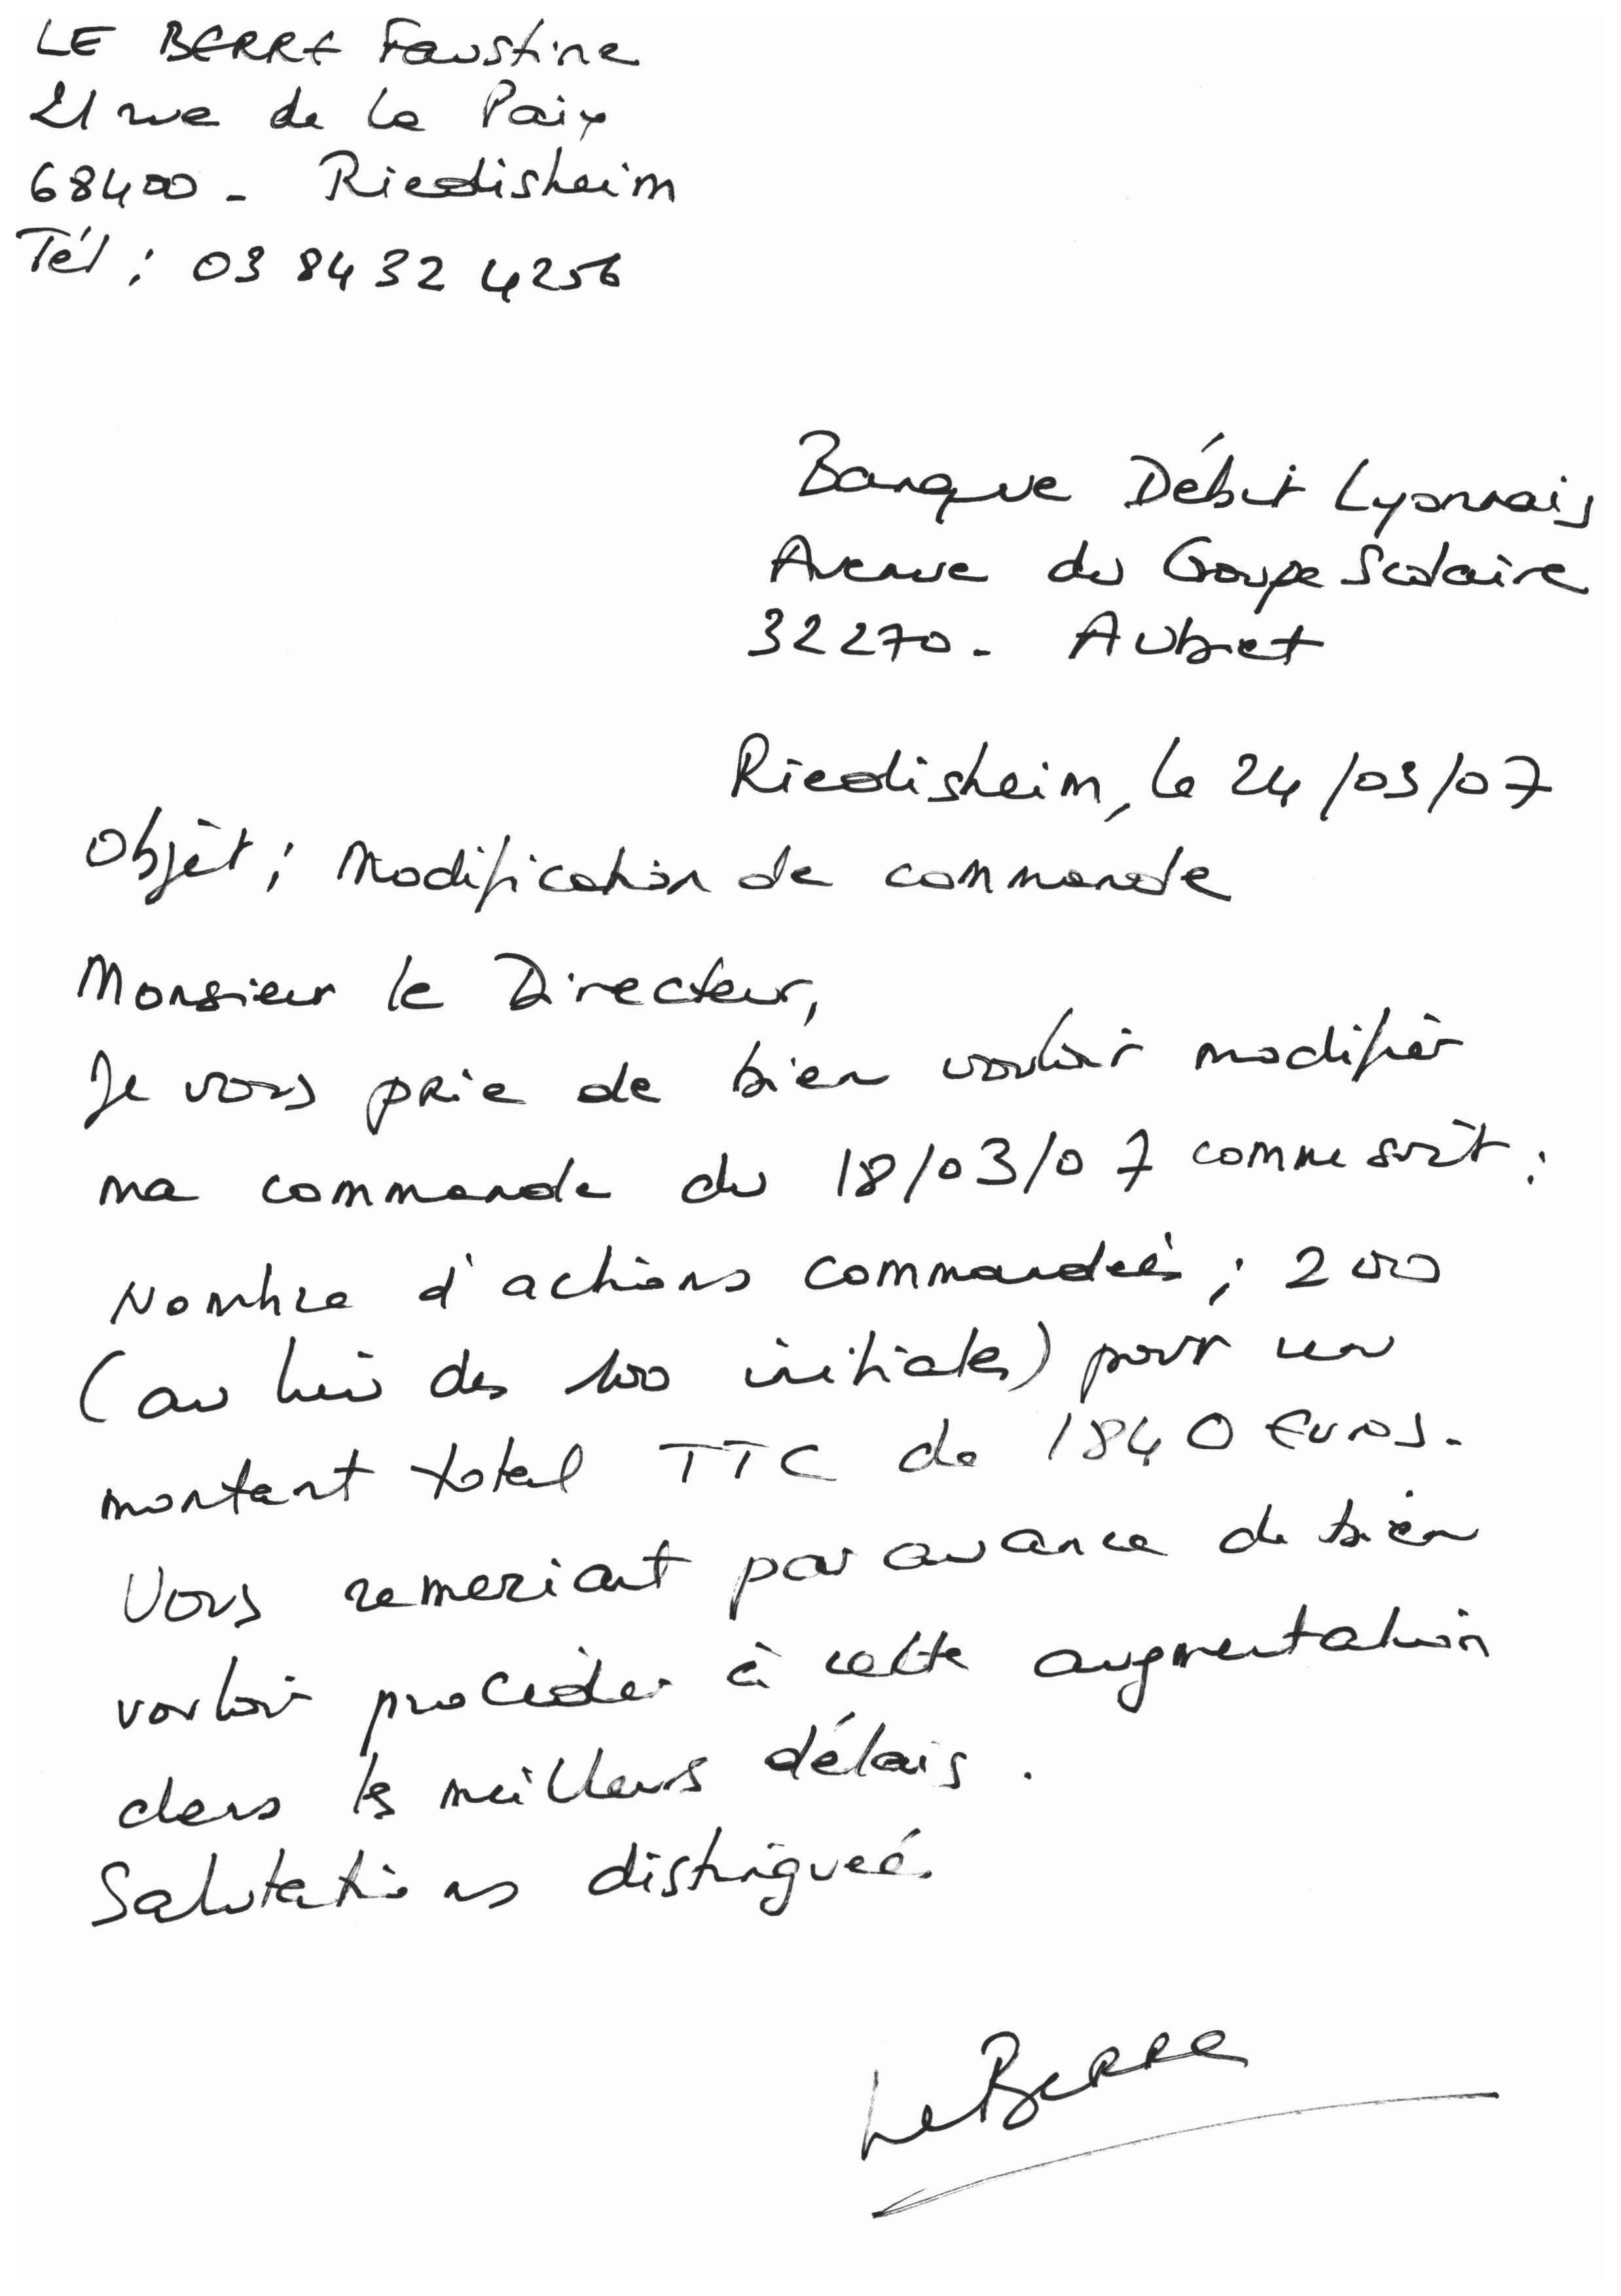 LE BERRE Faustine
21 rue de la Paix
68400 - Riedisheim
Tél : 03 84 32 42 56
Banque Débit Lyonnais
Avenue du Groupe Scolaire
32270 - Aubiet
Riedisheim, le 24/03/07
Objet : Modification de commande
Monsieur le Directeur,
Je vous prie de bien vouloir modifier
ma commande du 18/03/07 comme suit :
Nombre d'actions commandées : 200
(au lieu des 100 initiales) pour un
montant total TTC de 1840 Euros.
Vous remerciant par avance de bien
vouloir procéder à cette augmentation
dans les meilleurs délais.
Salutations distinguées
Le Berre